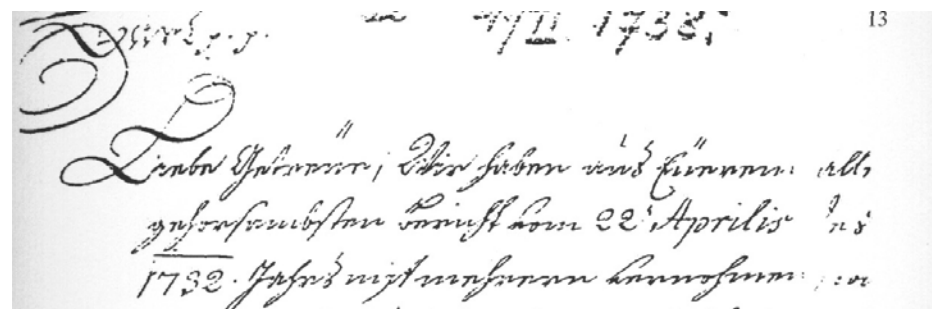 17/II. 1738. 13
Liebe Getreüe, Wir haben aus Eüeren all,
gehorsambsten bericht vom 22t Aprilis des
1732. Jahrs mehrern vernohmen